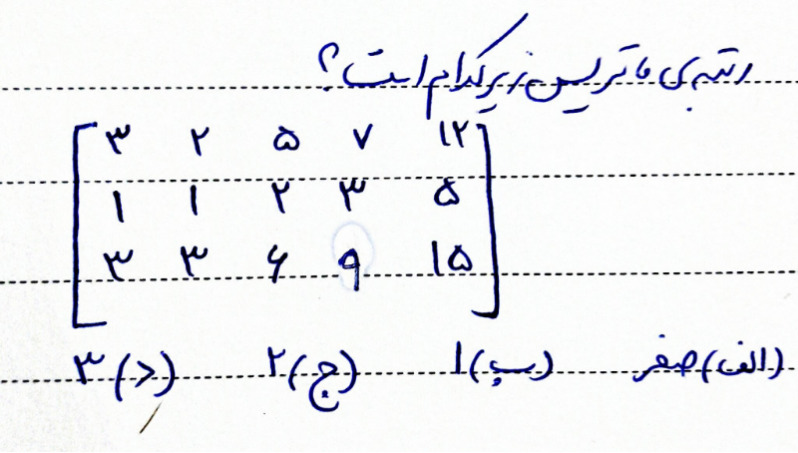 رتبه‌ی ماتریس زیر کدام است؟
۳ ۲ ۵ ۷ ۱۲
۱ ۱ ۲ ۳ ۵
۳ ۳ ۶ ۹ ۱۵
الف) صفر ب) ۱ ج) ۲ د) ۳